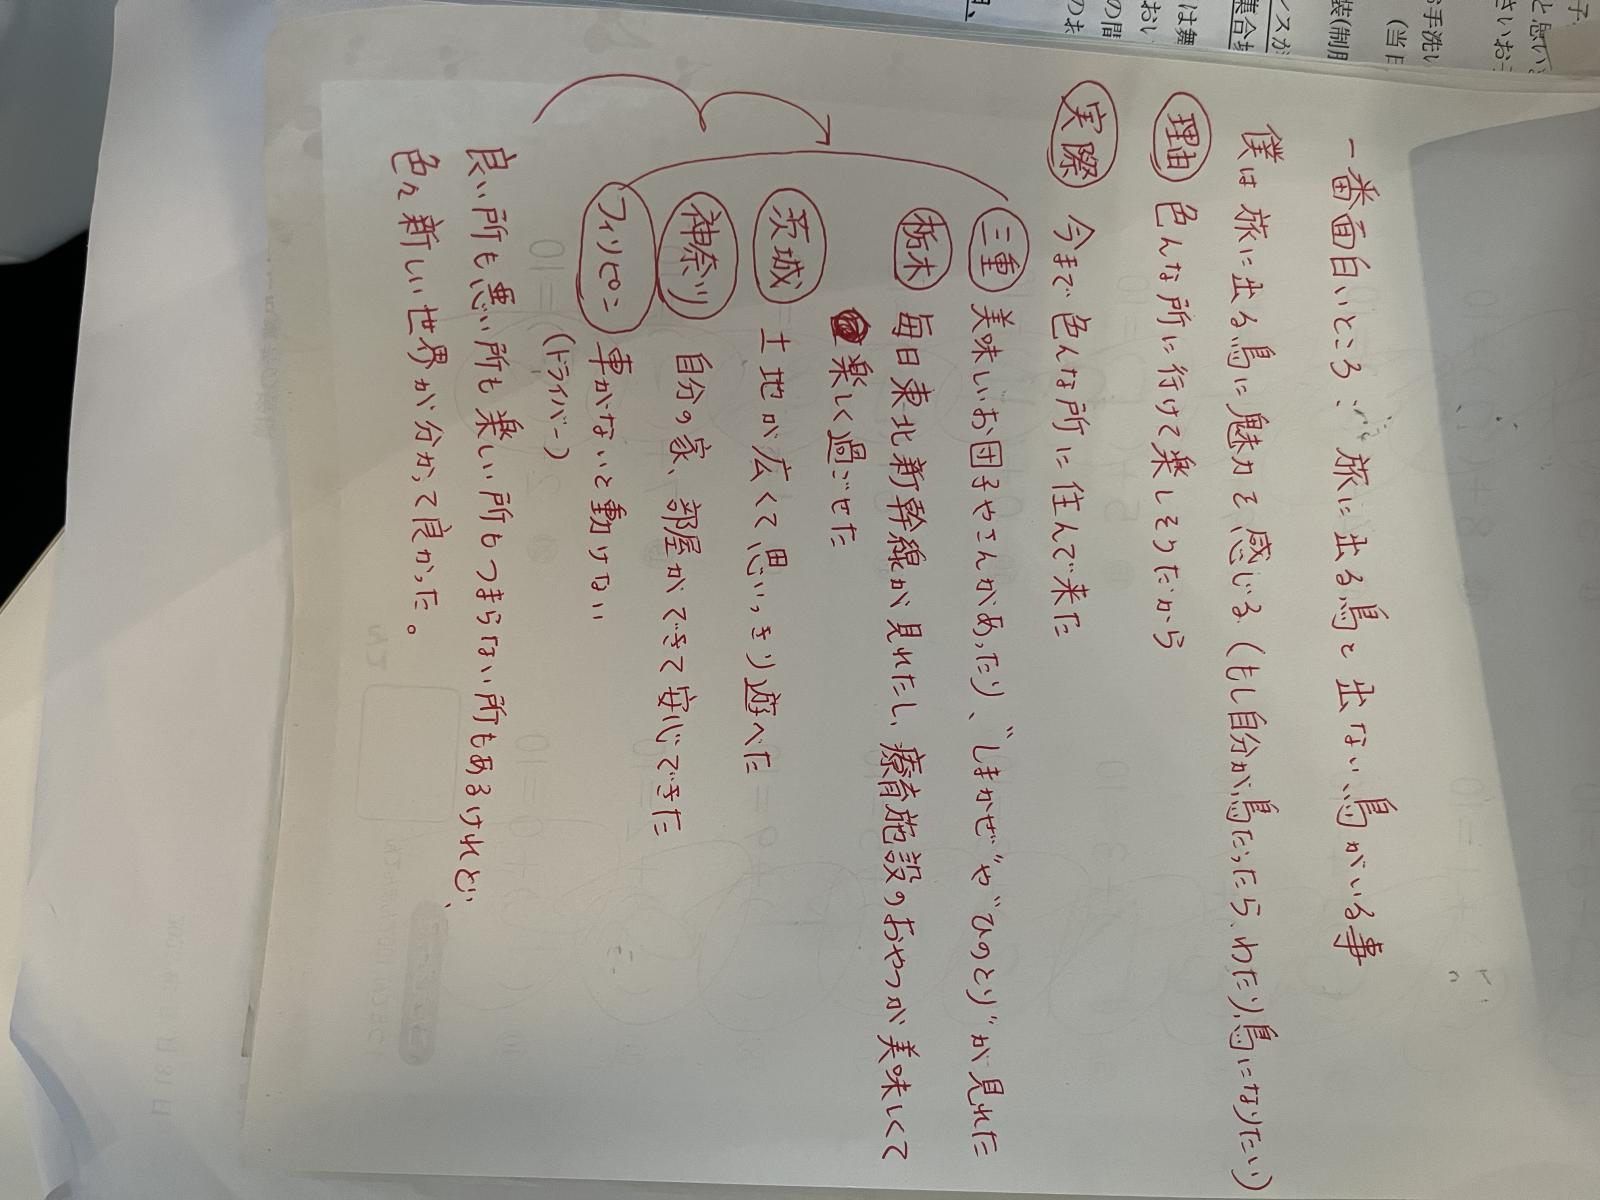 一番面白いところ:旅に出る鳥と出ない鳥がいる事
僕は旅に出る鳥に魅力を感じる(もし自分が鳥だったら、わたり鳥になりたい)
理由 色んな所に行けて楽しそうだから
実際 今まで色んな所に住んで来た
三重 美味いお団子やさんがあったり、"しまかぜ"や"ひのとり"が見れた
栃木 毎日東北新幹線が見れたし、療育施設のおやつが美味しくて
楽しく過ごせた
茨城 土地が広くて思いっきり遊べた
神奈川 自分の家、部屋ができて安心できた
フィリピン 車がないと動けない
(ドライバー)
良い所も悪い所も楽しい所もつまらない所もあるけれど、
色々新しい世界が分かって良かった。